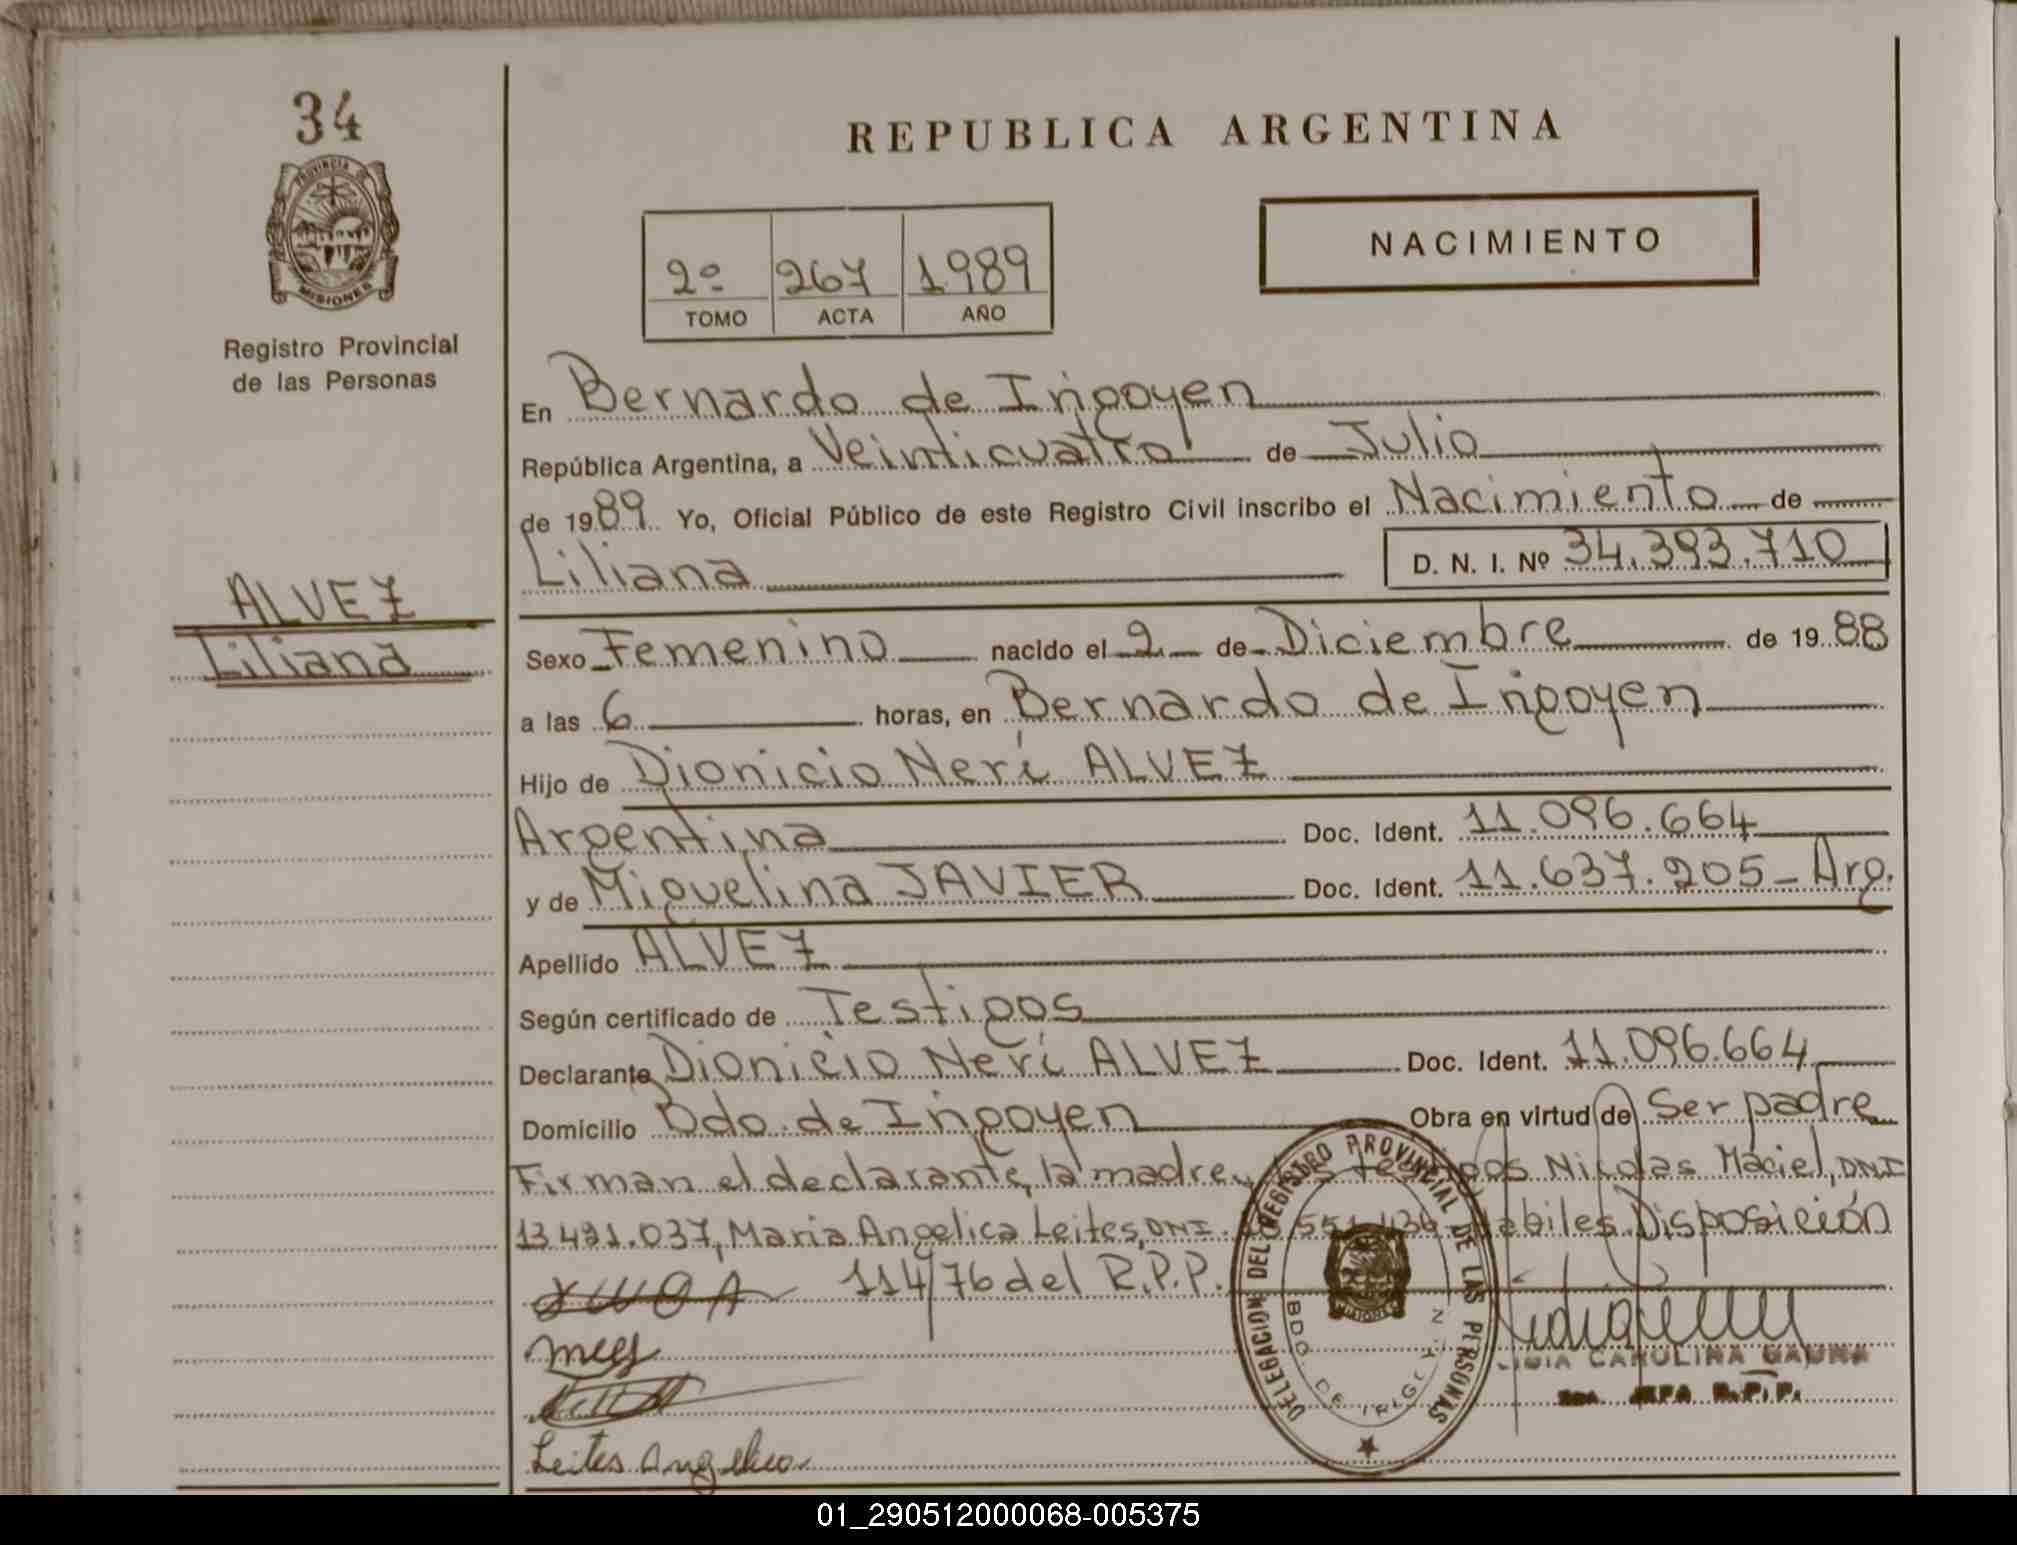 34
PROVINCIA DE
MISIONES
Registro Provincial
de las Personas
REPUBLICA ARGENTINA
NACIMIENTO
2º 267 1989
TOMO ACTA AÑO
En Bernardo de Irigoyen
República Argentina, a Veinticuatro de Julio
de 1989 Yo, Oficial Público de este Registro Civil inscribo el Nacimiento de
Liliana D. N. I. Nº 34.393.710
ALVEZ
Liliana
Sexo Femenino nacido el 2 de Diciembre de 1988
a las 6 horas, en Bernardo de Irigoyen
Hijo de Dionicio Neri ALVEZ
Argentina Doc. Ident. 11.096.664
y de Miguelina JAVIER Doc. Ident. 11.637.205 - Arg.
Apellido ALVEZ
Según certificado de Testigos
Declarante Dionicio Neri ALVEZ Doc. Ident. 11.096.664
Domicilio Bdo. de Irigoyen Obra en virtud de Ser padre
Firman el declarante, la madre y los testigos Nicolas Maciel, DNI
13.491.037, Maria Angelica Leites, DNI. habiles. Disposición
114/76 del R.P.P.
Leites Angelica
DELEGACION DEL REGISTRO PROVINCIAL DE LAS PERSONAS
BDO. DE IRIGOYEN
CAROLINA
JEFA R.P.P.
01_290512000068-005375